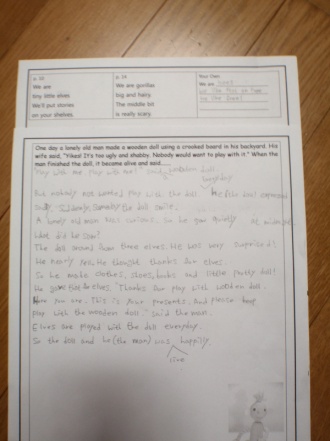 p. 10
We are
tiny little elves
We'll put stories
on your shelves.
p. 14
We are gorillas
big and hairy
The middle bit
is really scary
Your Own
We are
One day a lonely old man made a wooden doll using a crooked board in his backyard. His
wife said, "Yikes! It's too ugly and shabby. Nobody would want to play with it." When the
man finished the doll, it became alive and said......
"Play with me, Play with me!" said wooden doll.
everyday.
But nobody not wanted play with the doll. doll expressed
the doll smile.
A lonely old man was curious. So he saw quietly at midnight.
What did he saw?
The doll around three elves. He was very surprised!
He nearly He thought thanks for elves.
So he make clothes, shoes, and little pretty doll!
He gave the elves. "Thanks for play with wooden doll.
you are. This is your presents. And please keep
play with the wooden doll." said the man.
Elves are played with the doll everyday.
So the doll and he (the man) was happily.
live